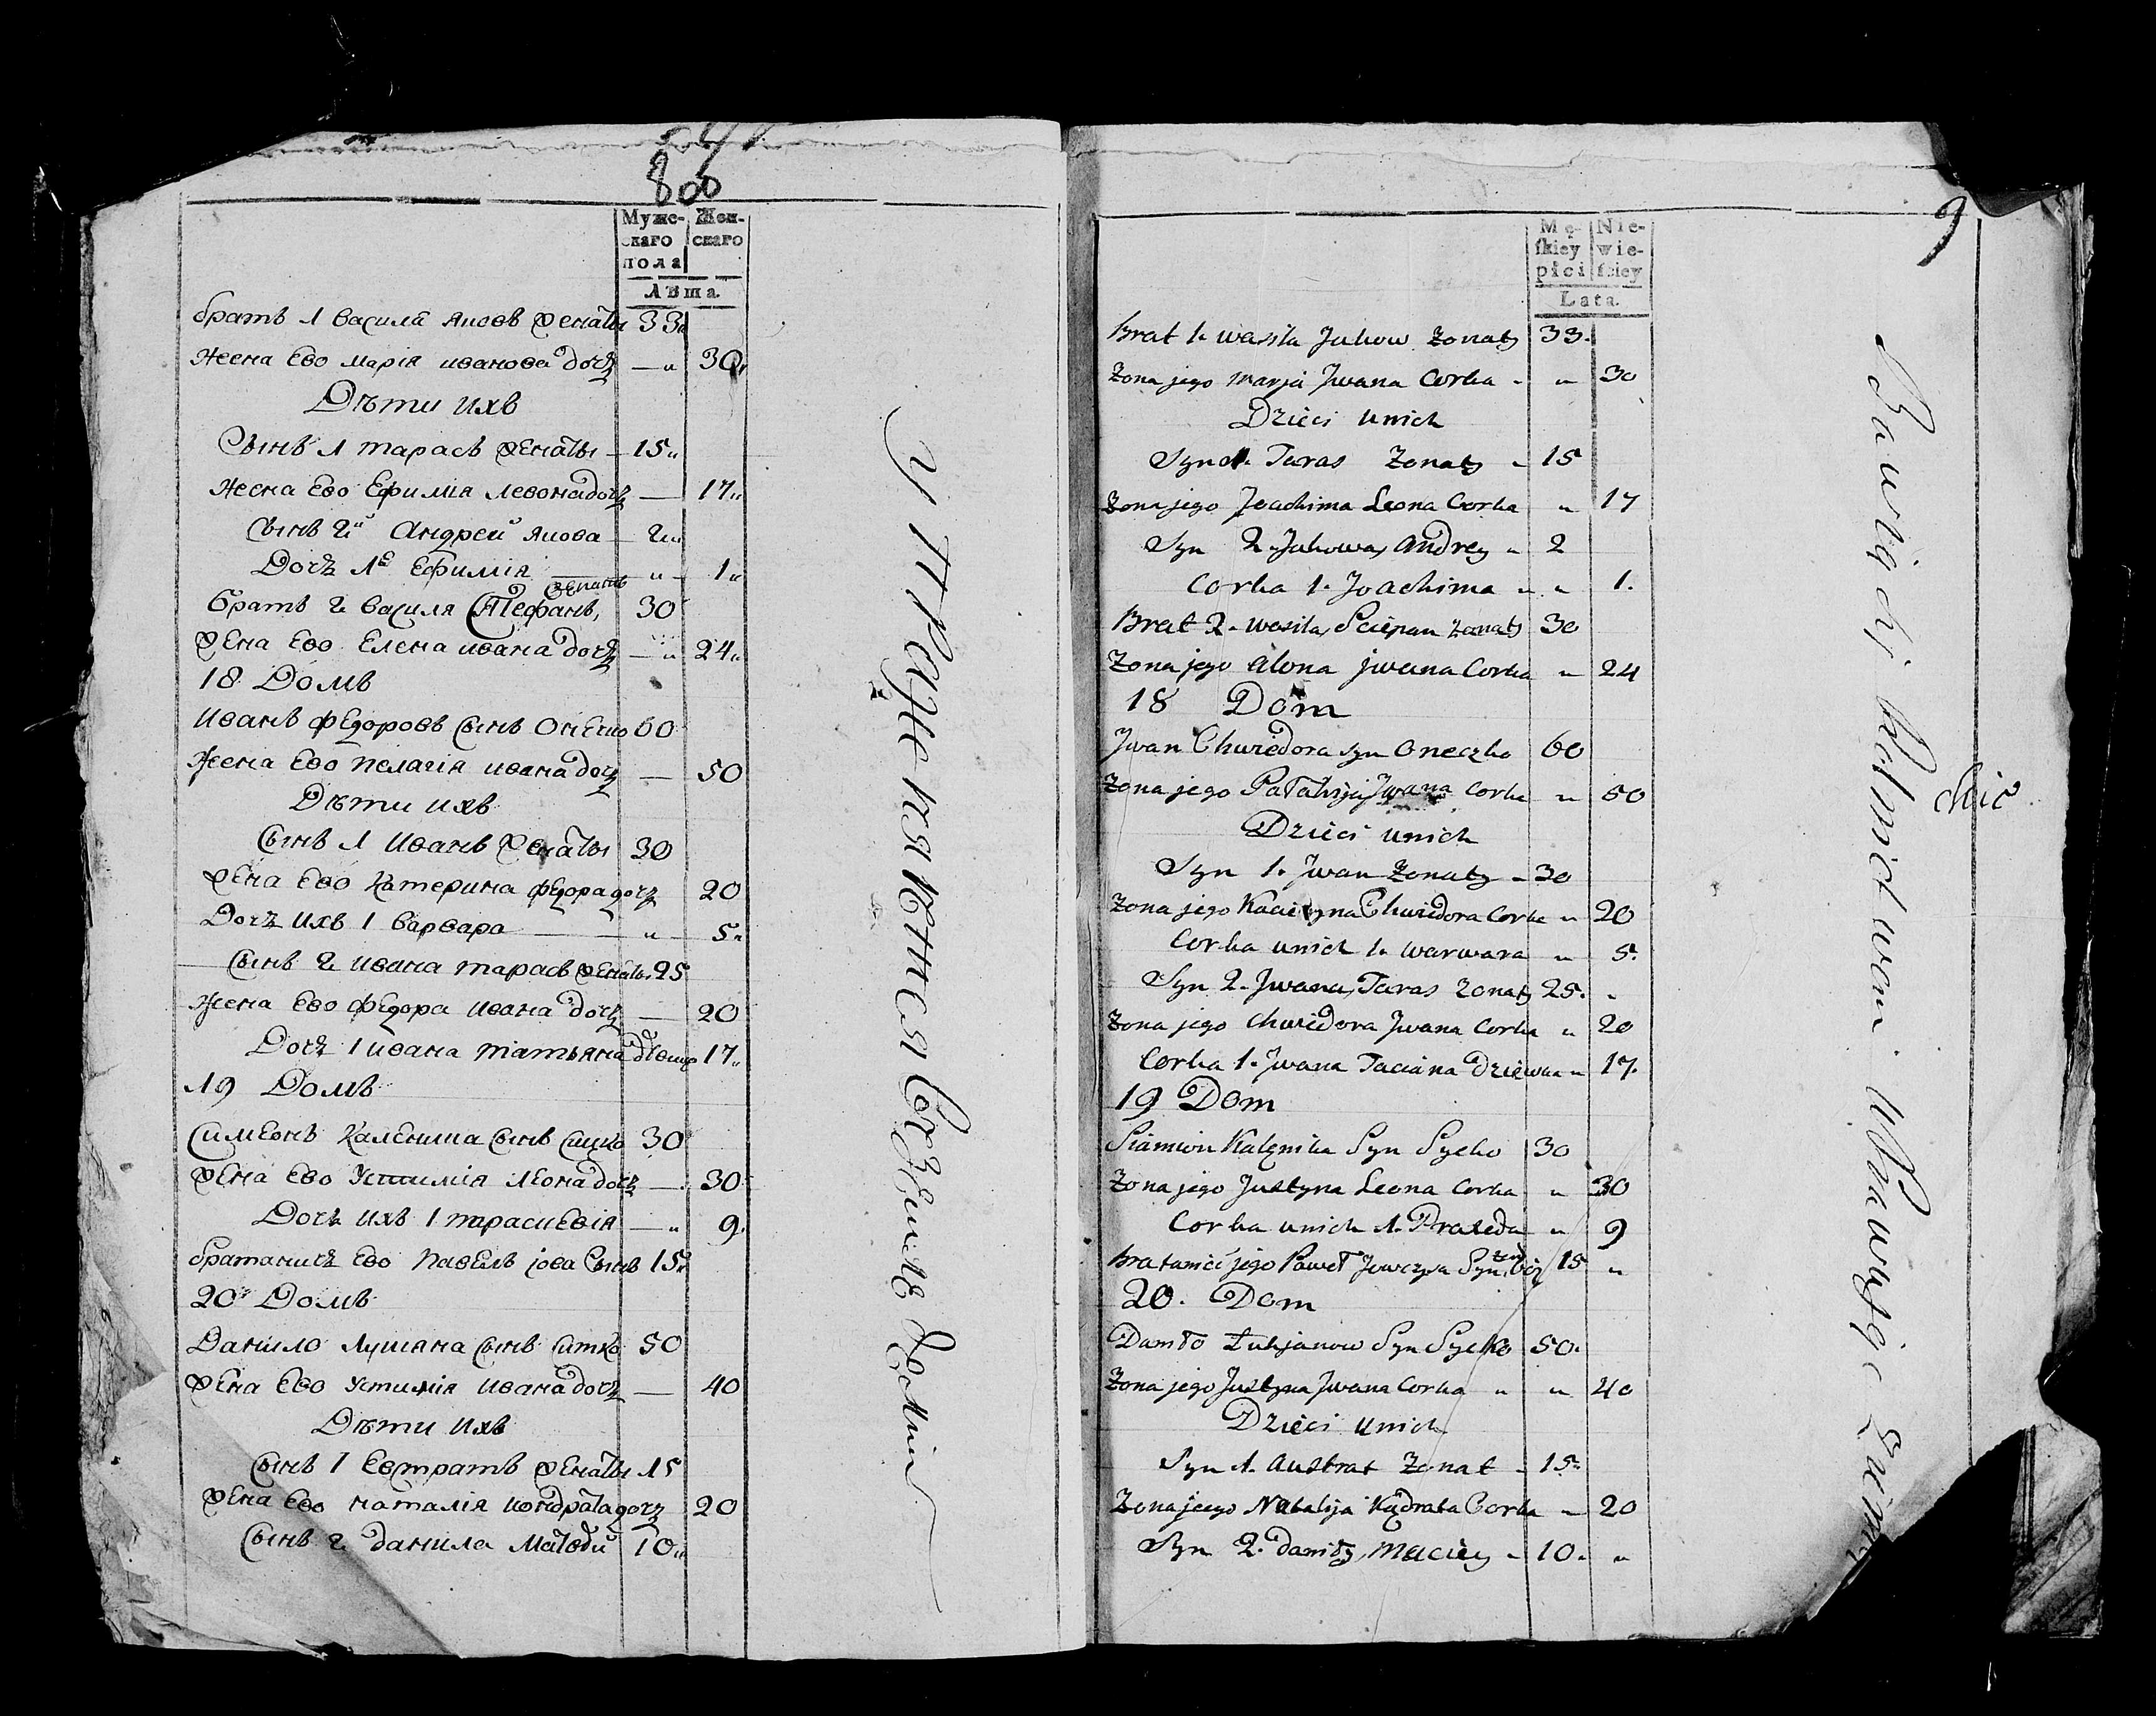 800
Муже- Жен-
скаго скаго
пола
Лѣта.
братъ 1 Василя Яковъ женатъ 33
жена Ево Марія Иванова дочь — 30
Дѣти ихъ
Сынъ 1 Тарасъ женатъ — 15
жена Ево Ефимія Левона дочь — 17
Сынъ 2й Андрей Якова — 2
Дочь 1е Ефимія — 1
женатъ
братъ 2 Василя Стефанъ, 30
жена Ево Елена Ивана дочь — 24
18 Домъ
Иванъ Федоровъ Сынъ Онечко 60
жена Ево Пелагія Ивана дочь — 50
Дѣти ихъ
Сынъ 1 Иванъ женатъ 30
жена Ево Катерина Федора дочь 20
Дочь ихъ 1 Варвара — 5
Сынъ 2 Ивана Тарасъ женатъ 25
жена Ево Федора Ивана дочь — 20
Дочь 1 Ивана Татьяна 17
19 Домъ
Симеонъ Каленика Сынъ Сицко 30
жена Ево Устимія Леона дочь — 30
Дочь ихъ 1 Парасцевія — 9
братаничъ Ево Павелъ Іова Сынъ 15
20 Домъ
Данило Лукяна Сынъ Ситко 50
жена Ево Устимія Ивана дочь — 40
Дѣти ихъ
Сынъ 1 Евстратъ женатъ 15
жена Ево Наталія Кондрата дочь 20
Сынъ 2 Данила Матвѣй 10
9
Mę- Nie-
skiey wie-
płci sciey
Lata.
Brat 1. wasila Jakow Zonaty 33.
Zona jego Marja Jwana Corka " 30
Dzieci unich
Syn 1. Taras Zonaty 15
Zona jego Joachima Leona Corka " 17
Syn 2. Jakowa, Andrey " 2
Corka 1. Joachima " " 1.
Brat 2. wasila, Sciepan Zonaty 30
Zona jego Alona Jwana Corka " 24
18 Dom
Jwan Chwiedora Syn Oneczko 60
Zona jego Pałahija Jwana Corka " 50
Dzieci unich
Syn 1. Jwan Zonaty 30
Zona jego Kacieryna Chwiedora Corka " 20
Corka unich 1. Warwara " 5.
Syn 2. Jwana, Taras Zonaty 25. "
Zona jego Chwiedora Jwana Corka " 20
Corka 1. Jwana Taciana Dziewka " 17.
19 Dom
Siamion Kalenika Syn Sycko 30
Zona jego Justyna Leona Corka " 30
Corka unich 1. Praxeda " 9
Bratanić jego Paweł Syn 15 "
20. Dom
Daniło Łukjanow Syn Sycko 50.
Zona jego Justyna Jwana Corka " " 40
Dzieci unich
Syn 1. Austrat Zonat 15.
Zona jeego Natalija Kądrata Corka " 20
Syn 2. Daniły, Maciey " 10. "